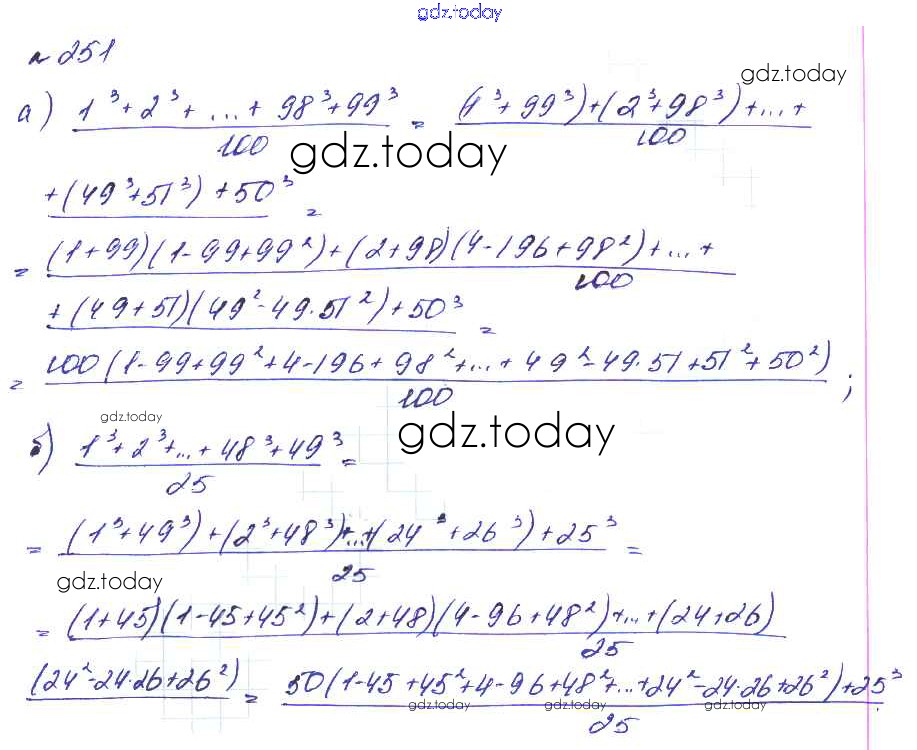 gdz.today
№ 251
gdz.today
а) (1³ + 2³ + ... + 98³ + 99³)/100 = (1³ + 99³) + (2³ + 98³) + ... + /100
gdz.today
+ (49³ + 51³) + 50³ =
= (1 + 99)(1 - 99 + 99²) + (2 + 98)(4 - 196 + 98²) + ... + /100
+ (49 + 51)(49² - 49·51²) + 50³ =
= 100(1 - 99 + 99² + 4 - 196 + 98² + ... + 49² - 49·51 + 51² + 50²)/100 ;
gdz.today
gdz.today
б) (1³ + 2³ + ... + 48³ + 49³)/25 =
= ((1³ + 49³) + (2³ + 48³) + ... + (24³ + 26³) + 25³)/25 =
gdz.today
= (1 + 45)(1 - 45 + 45²) + (2 + 48)(4 - 96 + 48²) + ... + (24 + 26)/25
(24² - 24·26 + 26²) = 50(1 - 45 + 45² + 4 - 96 + 48² + ... + 24² - 24·26 + 26²) + 25³/25
gdz.today gdz.today gdz.today